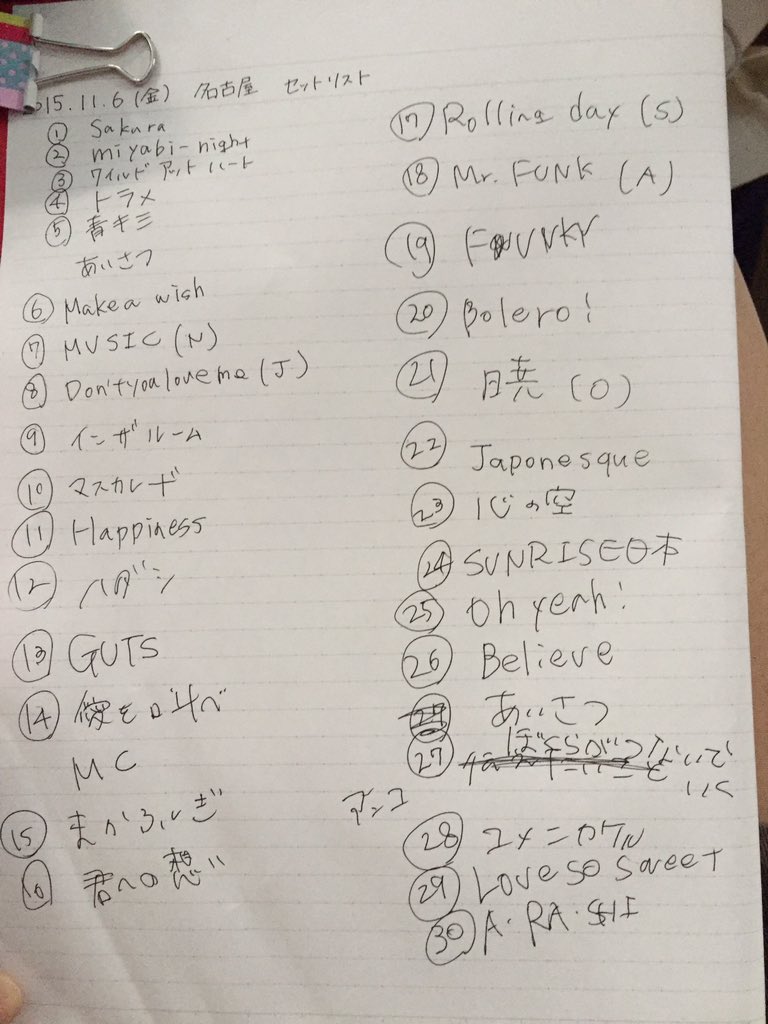 2015.11.6(金) 名古屋 セットリスト
① Sakura
② miyabi-night
③ ワイルド アット ハート
④ トラメ
⑤ 青キミ
あいさつ
⑥ Make a wish
⑦ MUSIC (N)
⑧ Don't you love me (J)
⑨ インザルーム
⑩ マスカレード
⑪ Happiness
⑫ ハダシ
⑬ GUTS
⑭ 愛を叫べ
MC
⑮ まかふしぎ
⑯ 君への想い
⑰ Rolling day (S)
⑱ Mr. FUNK (A)
⑲ FUNKY
⑳ Bolero!
㉑ 暁 (O)
㉒ Japonesque
㉓ 心の空
㉔ SUNRISE日本
㉕ Oh yeah!
㉖ Believe
あいさつ
㉗ ぼくらがつないで
いく
アンコ
㉘ ユメニカケル
㉙ Love so sweet
㉚ A・RA・SHI